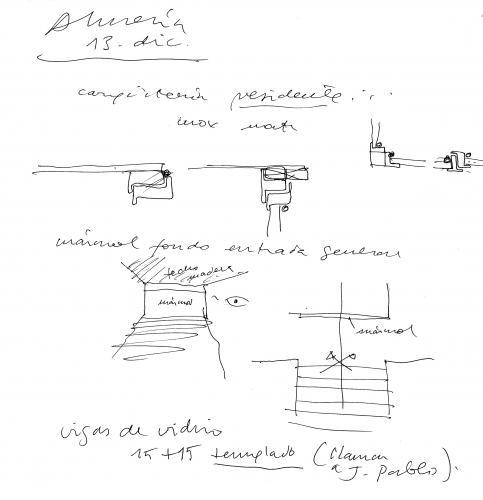 Almería
13. dic.
carpintería residente...
inox mate
mármol fondo entrada general
techo
madera
mármol
mármol
vigas de vidrio
15+15 templado (llamar
a J. Pablo).